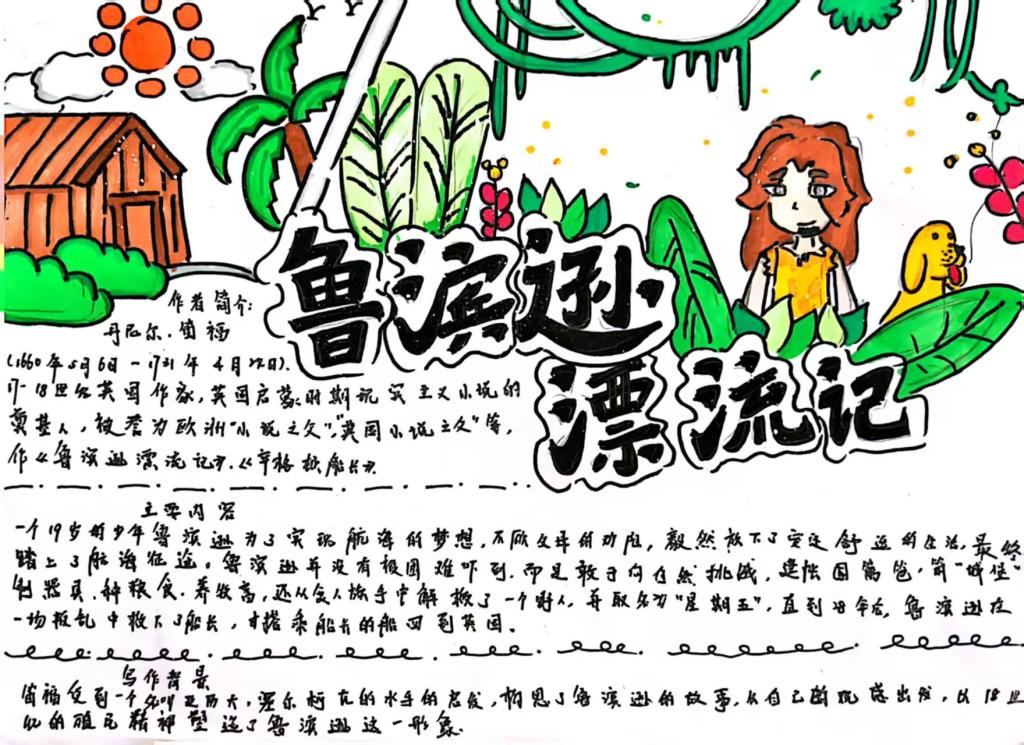 鲁滨逊
漂流记
作者简介:
丹尼尔·笛福
(1660年5月6日-1731年4月22日),
17-18世纪英国作家,英国启蒙时期现实主义小说的
奠基人,被誉为欧洲“小说之父”,“英国小说之父”等,
作《鲁滨逊漂流记》.《辛格顿船长》.
主要内容
一个19岁的少年鲁滨逊为了实现航海的梦想,不顾父母的劝阻,毅然放下了安定舒适的生活,最终
踏上了航海征途。鲁滨逊并没有被困难吓到,而是敢于向自然挑战,建帐围篱笆,筑“城堡”
制器具.种粮食.养牧畜,还从食人族手中解救了一个野人,并取名为“星期五”,直到28年后,鲁滨逊在
一场叛乱中救下了船长,才搭乘船长的船回到英国。
写作背景
笛福受到一个名叫亚历大,塞尔柯克的水手的启发,构思了鲁滨逊的故事,从自己的现感出发,以18世
纪的殖民精神塑造了鲁滨逊这一形象.